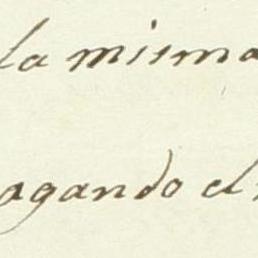 la misma
agando el